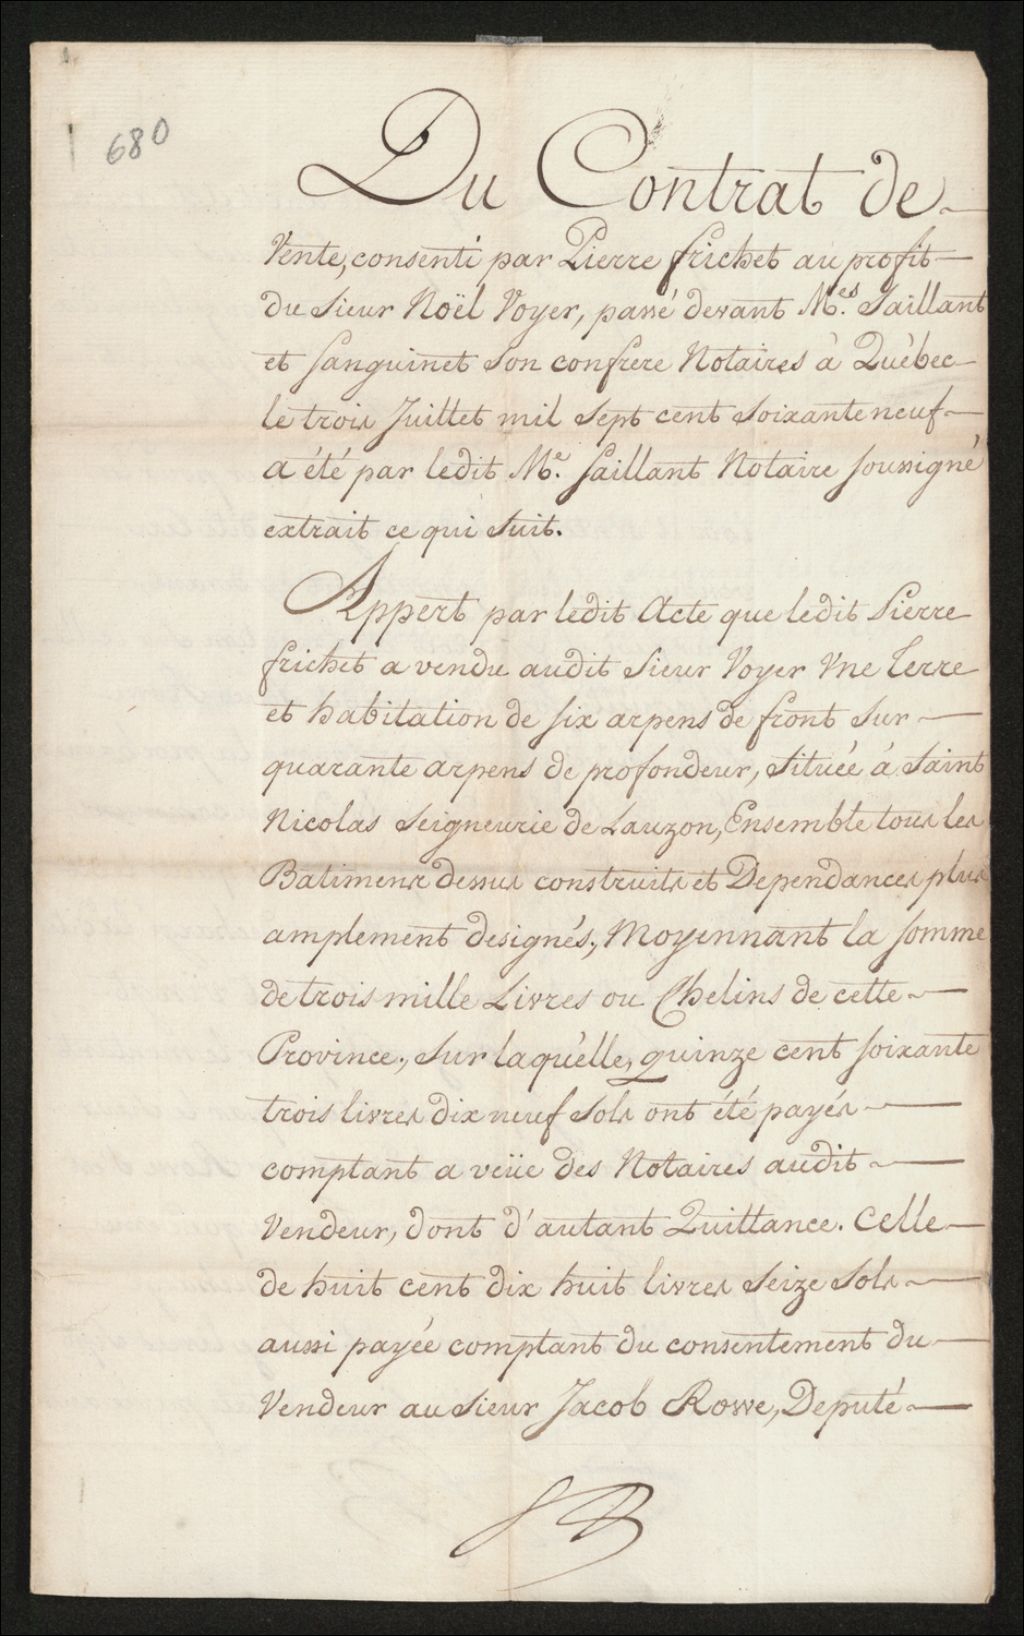 680
Du Contrat de
Vente, consenti par Pierre frichet au profit
du Sieur Noël Voyer, passé devant M.es Saillant
et Sanguinet Son confrere Notaires à Québec
le trois Juillet mil Sept cent Soixante neuf
a été par ledit M.e Saillant Notaire Soussigné
extrait ce qui Suit.
Appert par ledit Acte que ledit Pierre
frichet a vendu audit Sieur Voyer Une Terre
et habitation de Six arpens de front Sur
quarante arpens de profondeur, Située à Saint
Nicolas Seigneurie de Lauzon, Ensemble tous les
Batimens dessus construits et Dependances plus
amplement designés; Moyennant la Somme
de trois mille Livres ou Chelins de cette
Province; Sur laquélle, quinze cent Soixante
trois livres dix neuf Sols ont été payés
comptant a veüe des Notaires audit
Vendeur, dont d'autant Quittance. Celle
de huit cent dix huit livres Seize Sols
aussi payée comptant du consentement du
Vendeur au Sieur Jacob Rowe, Deputé